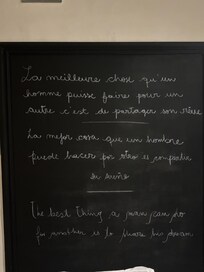 La meilleure chose qu'un
homme puisse faire pour un
autre c'est de partager son rêve
La mejor cosa que un hombre
puede hacer por otro es compartir
su sueño
The best thing a man can do
for another is to share his dream